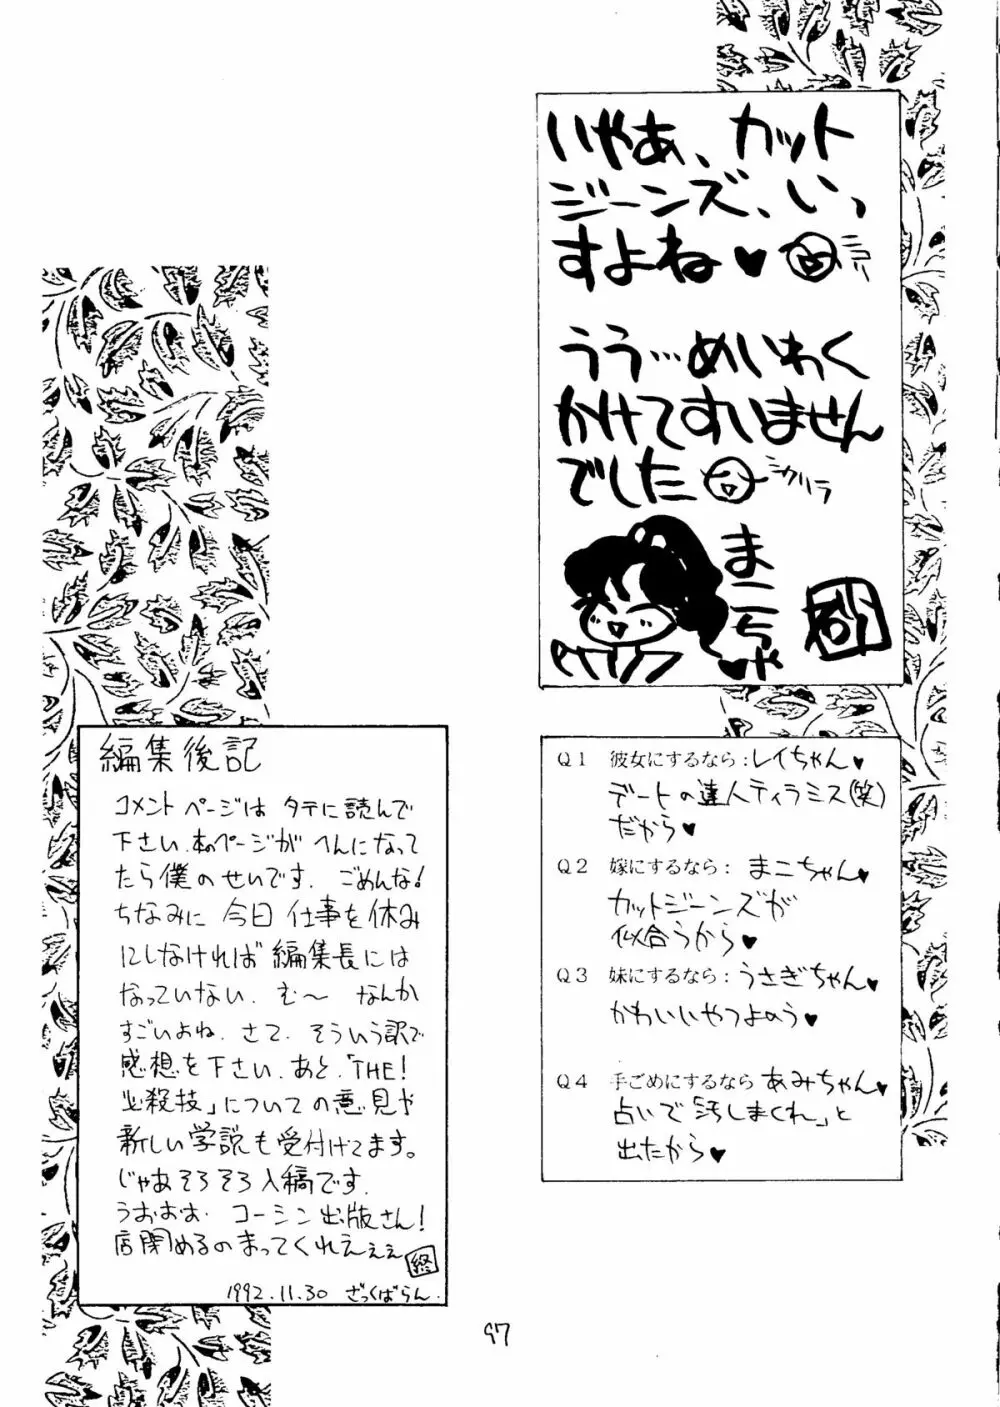 いやあ、カット
ジーンズ、いっ
すよね♥ ニコニコ
うう…めいわく
かけてすいません
でした
まこちゃ
Q1 彼女にするなら:レイちゃん♥
デートの達人ティラミス(笑)
だから♥
Q2 嫁にするなら: まこちゃん♥
カットジーンズが
似合うから♥
Q3 妹にするなら:うさぎちゃん♥
かわいいやつよのう♥
Q4 手ごめにするなら あみちゃん♥
占いで「汚しまくれ」と
出たから♥
編集後記
コメントページは タテに読んで
下さい.本のページが へんになって
たら僕のせいです. ごめんな!
ちなみに 今日 仕事を休み
にしなければ 編集長には
なっていない. む〜 なんか
すごいよね. さて. そういう訳で
感想を下さい. あと.「THE!
必殺技」についての意見や
新しい学説も受付けてます。
じゃあそろそろ入稿です.
うおおお. コーシン出版さん!
店閉めるのまってくれえぇぇ 終
1992.11.30 ざっくばらん.
97